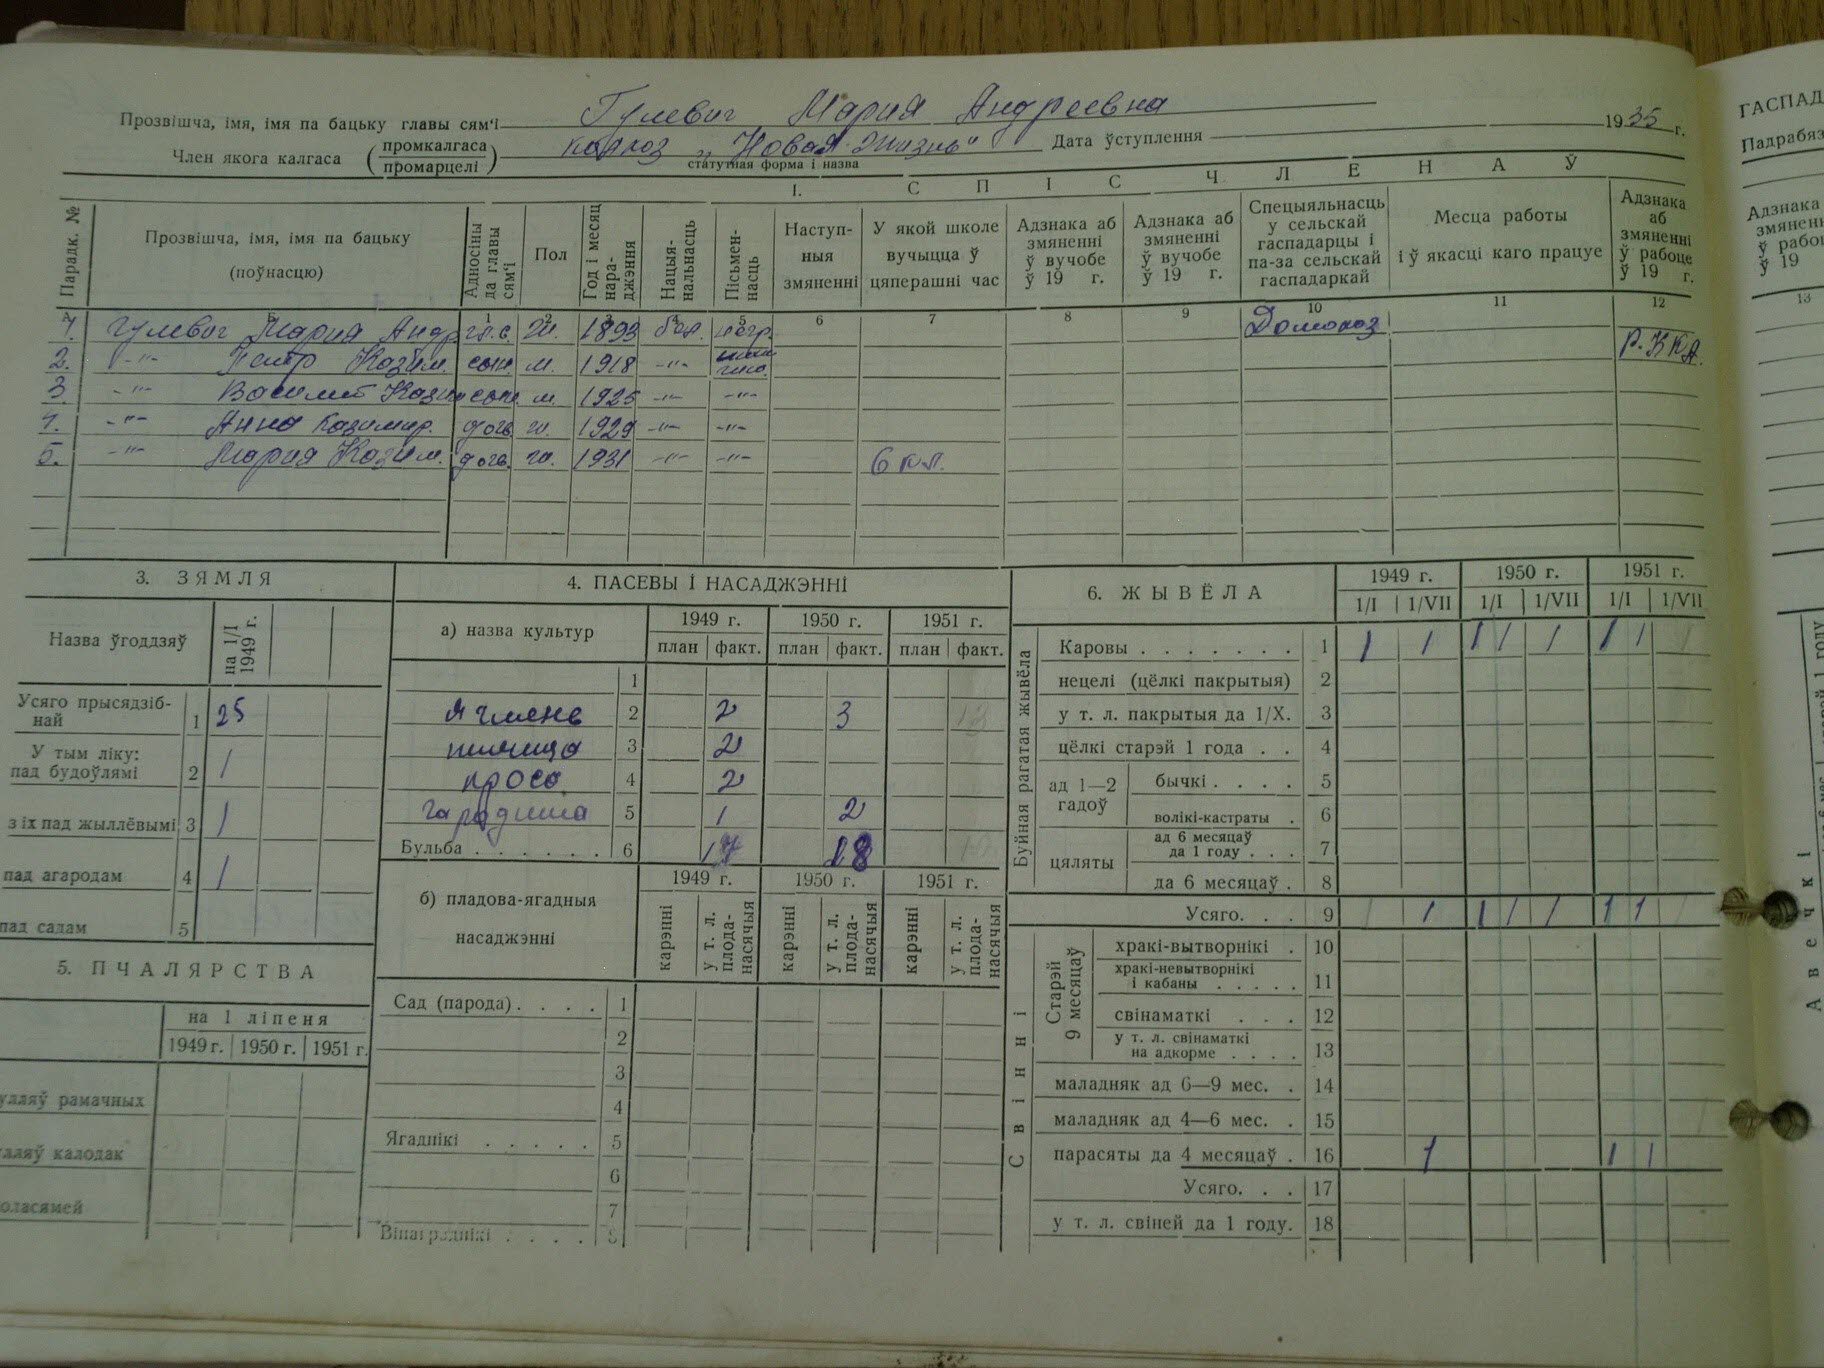 Прозвішча, імя, імя па бацьку главы сям'і Гулевич Мария Андреевна
Член якога калгаса (промкалгаса промарцелі) колхоз „Новая Жизнь" Дата ўступлення 1935 г.
статутная форма і назва
I. СПІС ЧЛЕНАЎ
Парадк. № Прозвішча, імя, імя па бацьку (поўнасцю) Адносіны да главы сям'і Пол Год і месяц нараджэння Нацыянальнасць Пісьменнасць Наступныя змяненні У якой школе вучыцца ў цяперашні час Адзнака аб змяненні ў вучобе ў 19 г. Адзнака аб змяненні ў вучобе ў 19 г. Спецыяльнасць у сельскай гаспадарцы і па-за сельскай гаспадаркай Месца работы і ў якасці каго працуе Адзнака аб змяненні ў рабоце ў 19 г.
А Б 1 2 3 4 5 6 7 8 9 10 11 12
1. Гулевич Мария Андр гл.с. ж. 1893 бел. негр. Домохоз
2. -"- Петр Казим. сын. м. 1918 -"- Р.ККА
3 -"- Василий Казим сын. м. 1925 -"- -"-
4. -"- Анна Казимир. доч. ж. 1929 -"- -"-
5. -"- Мария Казим. доч. ж. 1931 -"- -"- 6 кл.
3. ЗЯМЛЯ
Назва ўгоддзяў на 1/I 1949 г.
Усяго прысядзібнай 1 25
У тым ліку: пад будоўлямі 2 1
з іх пад жыллёвымі 3 1
пад агародам 4 1
пад садам 5
5. ПЧАЛЯРСТВА
на 1 ліпеня
1949 г. 1950 г. 1951 г.
улляў рамачных
улляў калодак
4. ПАСЕВЫ І НАСАДЖЭННІ
а) назва культур 1949 г. 1950 г. 1951 г.
план факт. план факт. план факт.
1
ячмень 2 2 3
пшеница 3 2
просо 4 2
гародніна 5 1 2
Бульба 6 17 18
б) пладова-ягадныя насаджэнні 1949 г. 1950 г. 1951 г.
карэнні у т. л. плоданасячыя карэнні у т. л. плоданасячыя карэнні у т. л. плоданасячыя
Сад (парода) 1
2
3
4
Ягаднікі 5
6
7
Вінаграднікі 8
6. ЖЫВЁЛА 1949 г. 1950 г. 1951 г.
1/I 1/VII 1/I 1/VII 1/I 1/VII
Буйная рагатая жывёла
Каровы 1 1 1 1 1 1 1 1 1
нецелі (цёлкі пакрытыя) 2
у т. л. пакрытыя да 1/X. 3
цёлкі старэй 1 года 4
ад 1—2 гадоў бычкі 5
волікі-кастраты 6
цяляты ад 6 месяцаў да 1 году 7
да 6 месяцаў 8
Усяго 9 1 1 1 1 1 1 1 1
Свінні
Старэй 9 месяцаў
хракі-вытворнікі 10
хракі-невытворнікі і кабаны 11
свінаматкі 12
у т. л. свінаматкі на адкорме 13
маладняк ад 6—9 мес. 14
маладняк ад 4—6 мес. 15
парасяты да 4 месяцаў 16 1 1 1
Усяго 17
у т. л. свіней да 1 году. 18
ГАСПАД
Падрабяз
Адзнака
змяненн
ў рабо
ў 19
13
Авечкі